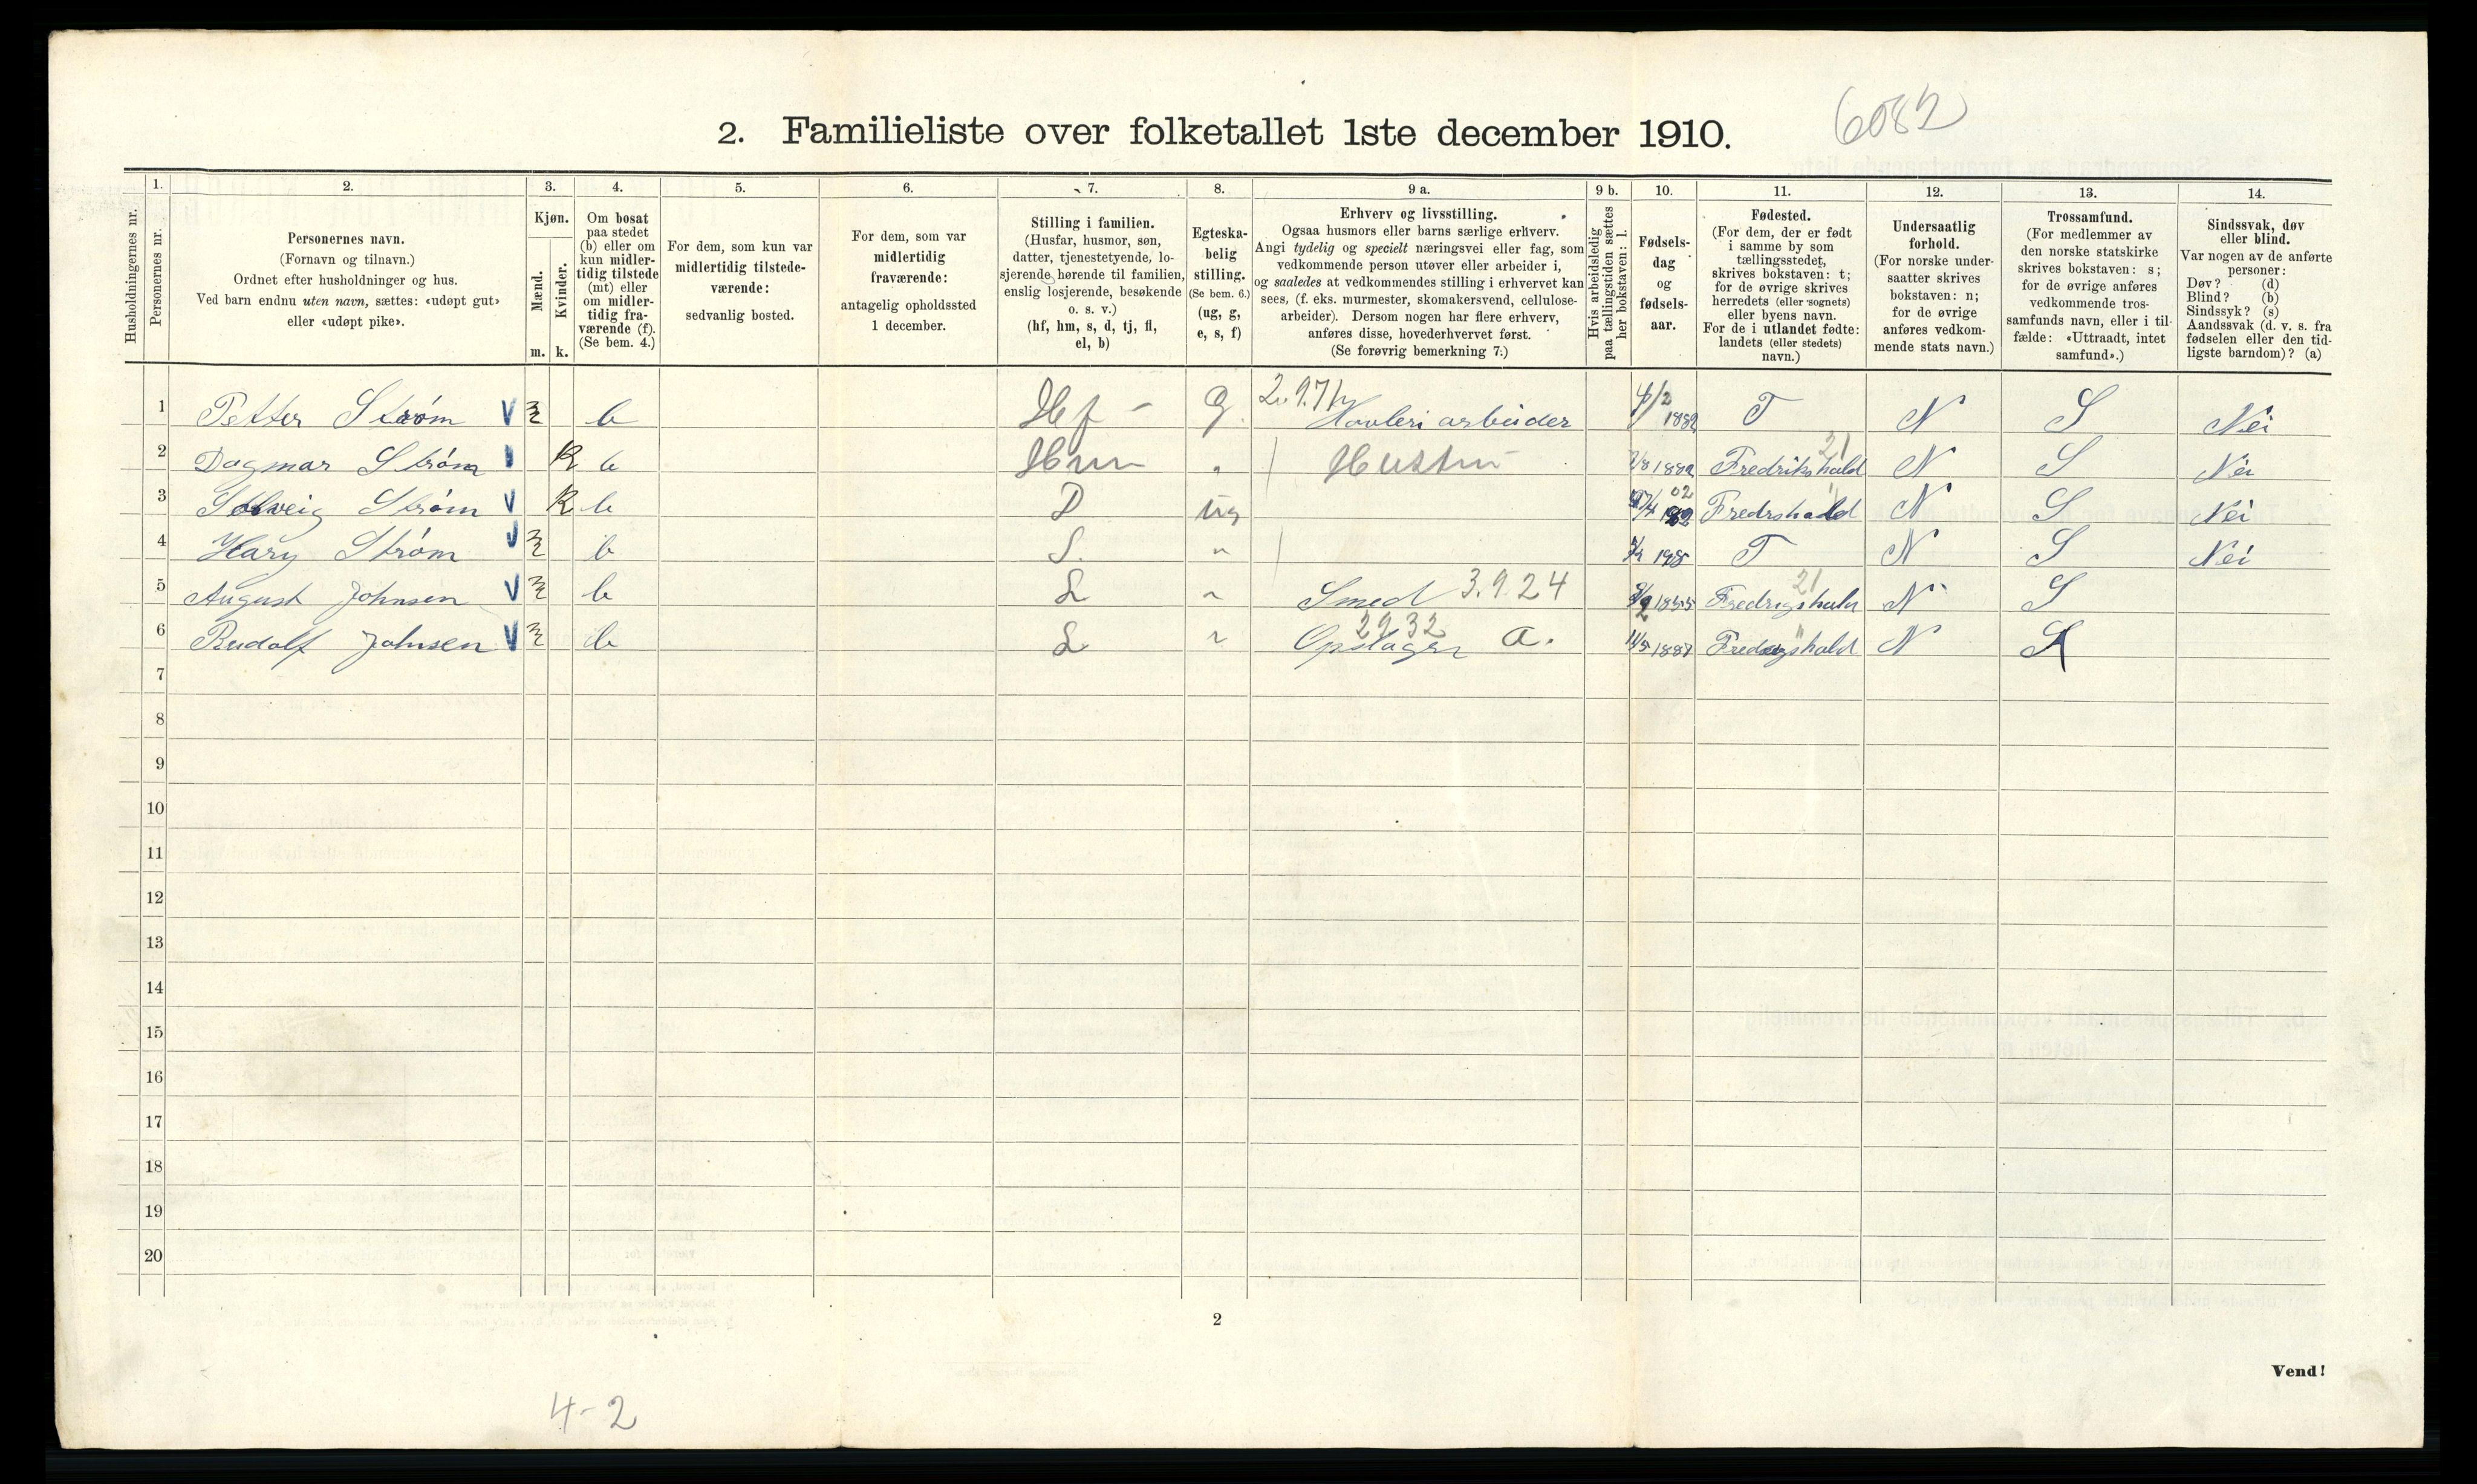 6082
2. Familieliste over folketallet 1ste december 1910.
Husholdningernes nr.
1.
Personernes nr.
2.
Personernes navn.
(Fornavn og tilnavn.)
Ordnet efter husholdninger og hus.
Ved barn endnu uten navn, sættes: «udøpt gut»
eller «udøpt pike».
3.
Kjøn.
Mænd.
Kvinder.
m. k.
4.
Om bosat
paa stedet
(b) eller om
kun midler-
tidig tilstede
(mt) eller
om midler-
tidig fra-
værende (f).
(Se bem. 4.)
5.
For dem, som kun var
midlertidig tilstede-
værende:
sedvanlig bosted.
6.
For dem, som var
midlertidig
fraværende:
antagelig opholdssted
1 december.
7.
Stilling i familien.
(Husfar, husmor, søn,
datter, tjenestetyende, lo-
sjerende hørende til familien,
enslig losjerende, besøkende
o. s. v.)
(hf, hm, s, d, tj, fl,
el, b)
8.
Egteska-
belig
stilling.
(Se bem. 6.)
(ug, g,
e, s, f)
9 a.
Erhverv og livsstilling.
Ogsaa husmors eller barns særlige erhverv.
Angi tydelig og specielt næringsvei eller fag, som
vedkommende person utøver eller arbeider i,
og saaledes at vedkommendes stilling i erhvervet kan
sees, (f. eks. murmester, skomakersvend, cellulose-
arbeider). Dersom nogen har flere erhverv,
anføres disse, hovederhvervet først.
(Se forøvrig bemerkning 7.)
9 b.
Hvis arbeidsledig
paa tællingstiden sættes
her bokstaven: l.
10.
Fødsels-
dag
og
fødsels-
aar.
11.
Fødested.
(For dem, der er født
i samme by som
tællingsstedet,
skrives bokstaven: t;
for de øvrige skrives
herredets (eller sognets)
eller byens navn.
For de i utlandet fødte:
landets (eller stedets)
navn.)
12.
Undersaatlig
forhold.
(For norske under-
saatter skrives
bokstaven: n;
for de øvrige
anføres vedkom-
mende stats navn.)
13.
Trossamfund.
(For medlemmer av
den norske statskirke
skrives bokstaven: s;
for de øvrige anføres
vedkommende tros-
samfunds navn, eller i til-
fælde: «Uttraadt, intet
samfund».)
14.
Sindssvak, døv
eller blind.
Var nogen av de anførte
personer:
Døv? (d)
Blind? (b)
Sindssyk? (s)
Aandssvak (d. v. s. fra
fødselen eller den tid-
ligste barndom)? (a)
1 Petter Strøm V m b Hf - g. Hovleri arbeider 1882 T N S Nei
2 Dagmar Strøm K b Hm " Hustru Fredrikshald 21 N S Nei
3 Solveig Strøm V K b D ug 02 Fredrshald " N S Nei
4 Hary Strøm V m b S. " T N S Nei
5 August Johnsen V m b L " Smed 3.9.24 1855 21 N S
6 Rudolf Johnsen V m b L " Opstager 2932 a. 11/5 1887 " N S
7
8
9
10
11
12
13
14
15
16
17
18
19
20
2
Vend!
4-2